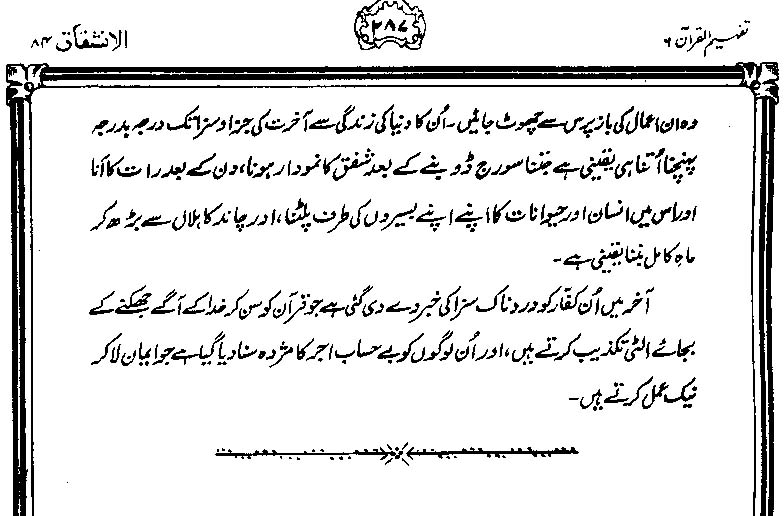 تفہیم القرآن ۶
۲۸۷
الانشقاق ۸۴
وہ ان اعمال کی باز پرس سے چھوٹ جائیں۔ اُن کا دنیا کی زندگی سے آخرت کی جزا و سزا تک درجہ بدرجہ
پہنچنا اُتنا ہی یقینی ہے جتنا سورج ڈوبنے کے بعد شفق کا نمودار ہونا، دن کے بعد رات کا آنا
اور اس میں انسان اور حیوانات کا اپنے اپنے بسیروں کی طرف پلٹنا، اور چاند کا ہلال سے بڑھ کر
ماہِ کامل بننا یقینی ہے۔
آخر میں اُن کفّار کو دردناک سزا کی خبر دے دی گئی ہے جو قرآن کو سن کر خدا کے آگے جھکنے کے
بجائے الٹی تکذیب کرتے ہیں، اور اُن لوگوں کو بے حساب اجر کا مژدہ سنا دیا گیا ہے جو ایمان لا کر
نیک عمل کرتے ہیں۔